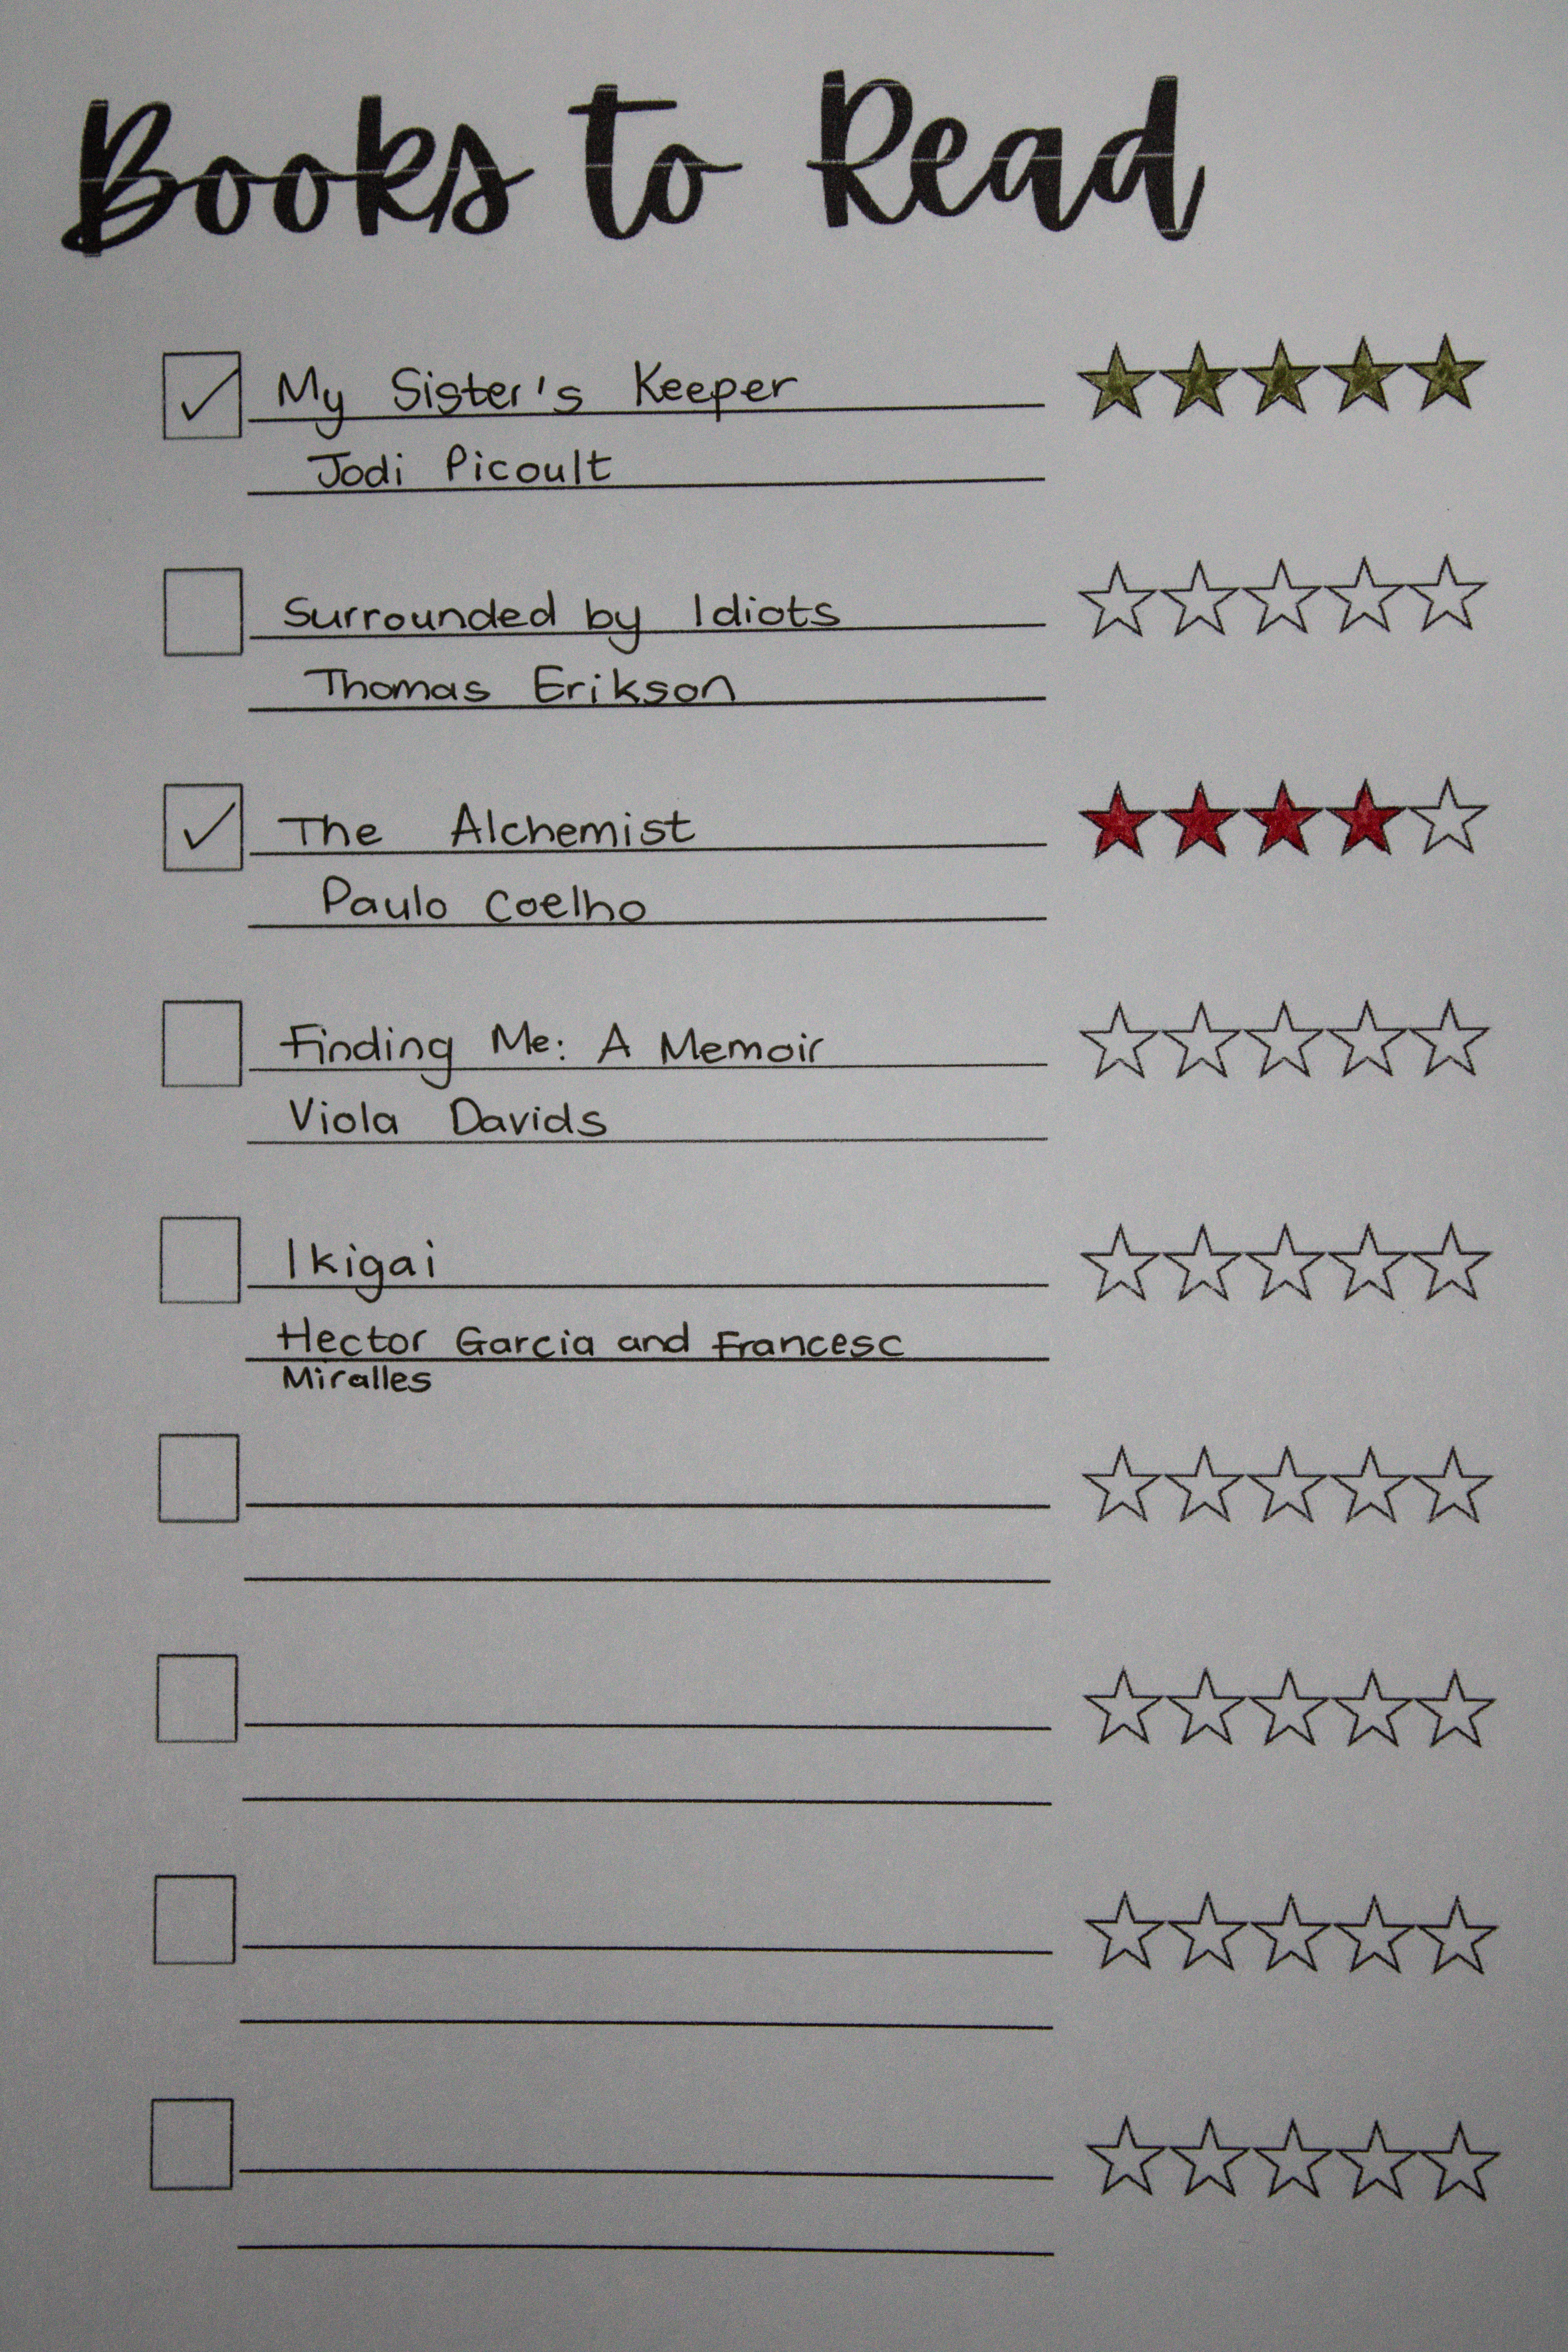 Books to Read
My Sister's Keeper
Jodi Picoult
Surrounded by Idiots
Thomas Erikson
The Alchemist
Paulo Coelho
Finding Me: A Memoir
Viola Davids
Ikigai
Hector Garcia and Francesc
Miralles